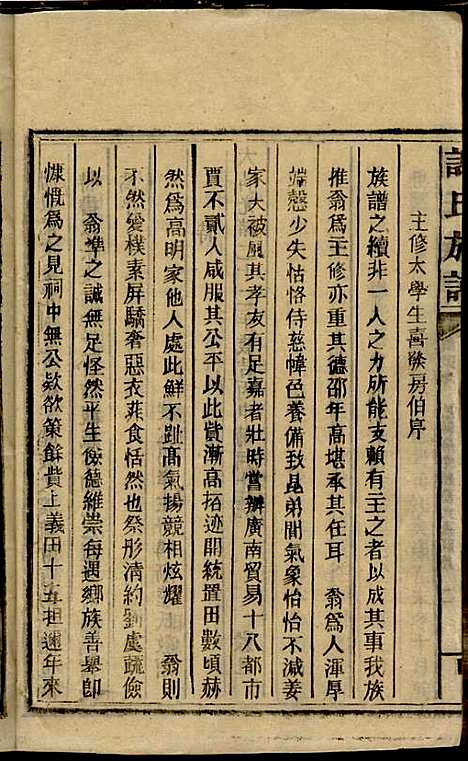 主修太學生喜發房伯序
族譜之續非一人之力所能支賴有主之者以成其事我族
推翁為主修亦重其德邵年高堪承其任耳　翁為人渾厚
端慤少失怙恪侍慈幃色養備致昆弟間氣象怡怡不減姜
家大被風其孝友有足嘉者壯時嘗辦廣南貿易十八都市
賈不貳人咸服其公平以此貲漸高拓迹開統置田數頃赫
然為高明家他人處此鮮不趾高氣揚競相炫耀　翁則
不然愛樸素屏驕奢惡衣菲食恬然也祭彤清約劉處疏儉
以　翁準之誠無足怪然平生儉德維崇每遇鄉族善舉即
慷慨為之見祠中無公欵欲策餘貲上義田十五担遞年來
氏族譜